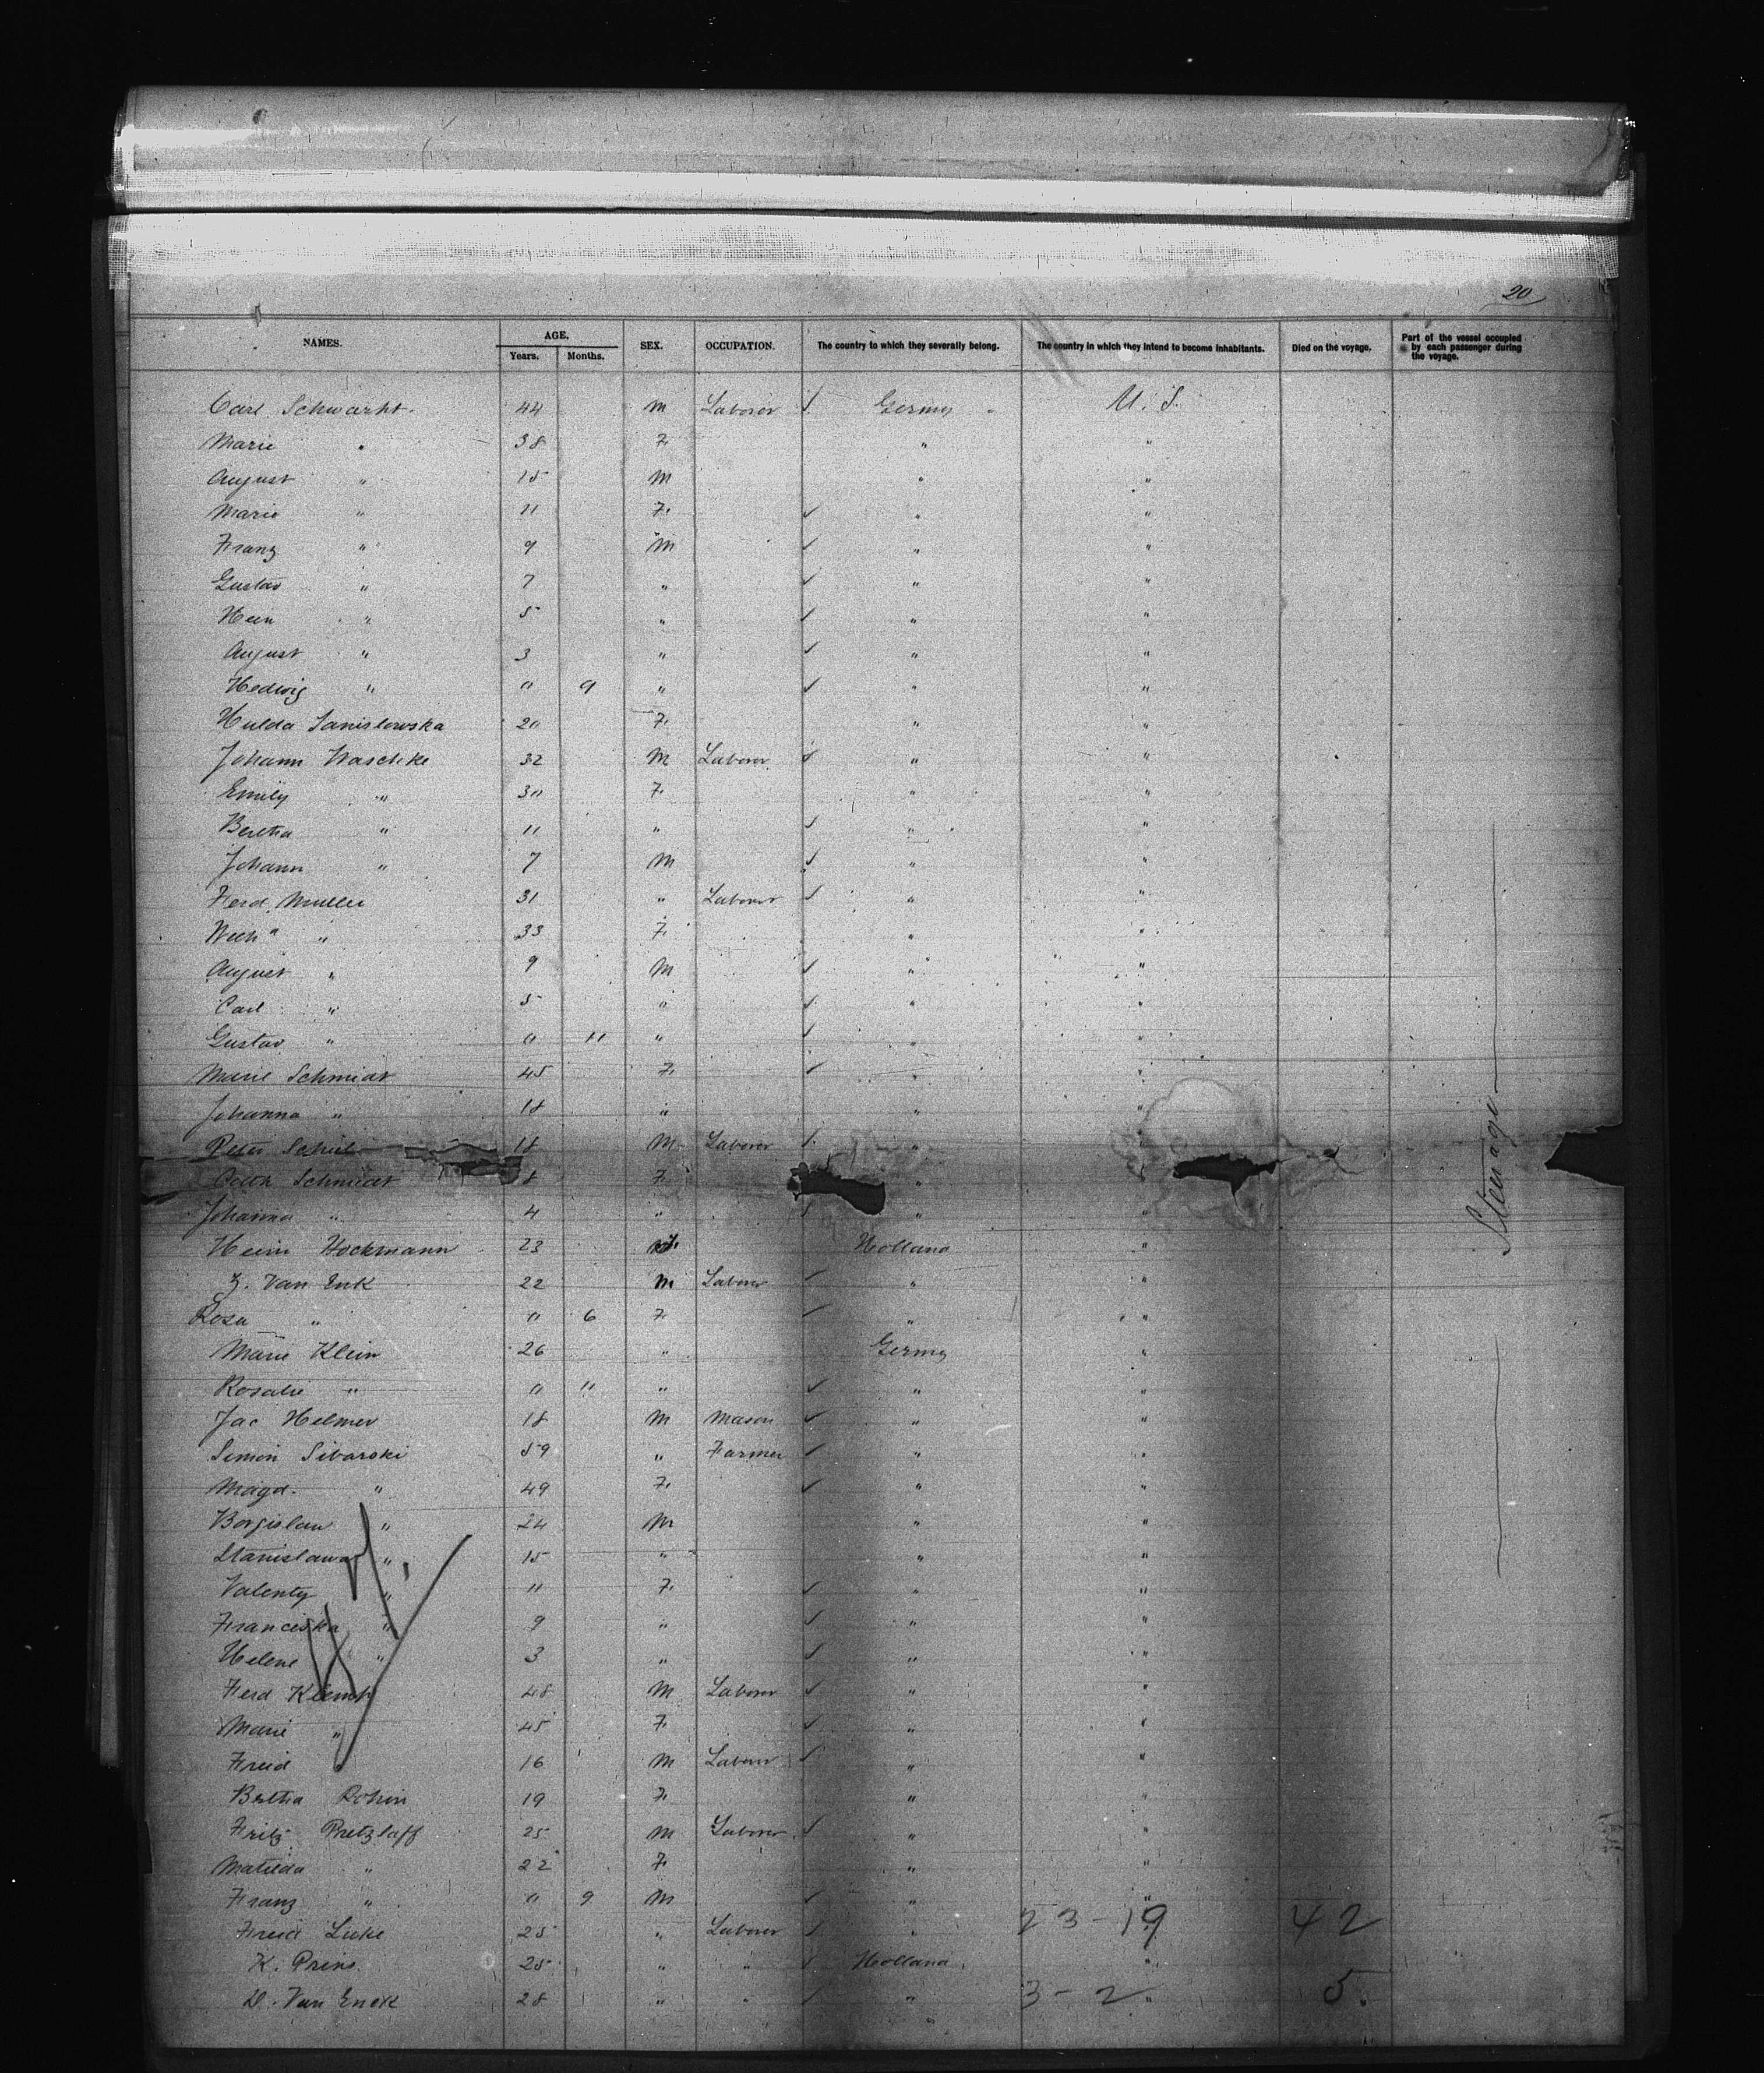 20
NAMES. AGE. SEX. OCCUPATION. The country to which they severally belong. The country in which they intend to become inhabitants. Died on the voyage. Part of the vessel occupied by each passenger during the voyage.
Years. Months.
Carl Schwarht. 44 M Laborer ✓ Germy U. S.
Marie " 38 F. " "
August " 15 M " "
Marie " 11 F. ✓ " "
Franz " 9 M ✓ " "
Gustav " 7 " ✓ " "
Hein " 5 " ✓ " "
August " 3 " ✓ " "
Hedwig " 0 9 " ✓ " "
Hulda Sanislowska 20 F. " "
Johann Waschke 32 M Laborer ✓ " "
Emily " 30 F. " "
Bertha " 11 " ✓ " "
Johann " 7 M ✓ " "
Ferd. Muller 31 " Laborer ✓ " "
" 33 F. " "
August " 9 M ✓ " "
Carl " 5 " ✓ " "
Gustav " 0 11 " ✓ " "
Marie Schmidt 45 F. ✓ " "
Johanna " 18 " " "
Peter 18 M Laborer ✓ " "
Cath Schmidt 8 F. "
Johanna " 4 " ✓ " "
Heini Hockmann 23 F. Holland "
Z. Van Enk 22 M Laborer ✓ " "
Rosa " 0 6 F. ✓ " "
Marie Klein 26 " Germy "
Rosalie " 0 11 " ✓ " "
Jac Helmer 18 M Mason ✓ " "
Simon Sibarski 59 " Farmer ✓ " "
Magd. " 49 F. ✓ " "
Borgislaw " 24 M " "
Stanislawa " 15 " " "
Valenty " 11 F. ✓ " "
Franciska " 9 " ✓ " "
Helene " 3 " ✓ " "
Ferd 48 M Laborer ✓ " "
Marie " 45 F. ✓ " "
Freid " 16 M Laborer ✓ " "
Bertha Rohin 19 F. " "
Fritz Pretzlaff 25 M Laborer ✓ " "
Matilda " 22 F. " "
Franz " 0 9 M ✓ " "
Freid Luke 25 " Laborer ✓ " 23-19 42
K. Prins 25 " " ✓ Holland. "
D. Van Enck 28 " " ✓ " 3-2 " 5.
Steerage